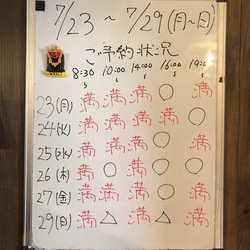 7/23 ~ 7/29 (月~日)
ご予約状況
8:30 10:00 14:00 16:00 19:00
~ ~ ~ ~ ~
23(月) 満 満 満 ○ 満
24(火) 満 満 満 満 満
25(水) 満 満 満 ○ 満
26(木) 満 ○ 満 ○ ○
27(金) 満 満 満 ○ 満
29(日) 満 △ 満 △ 満